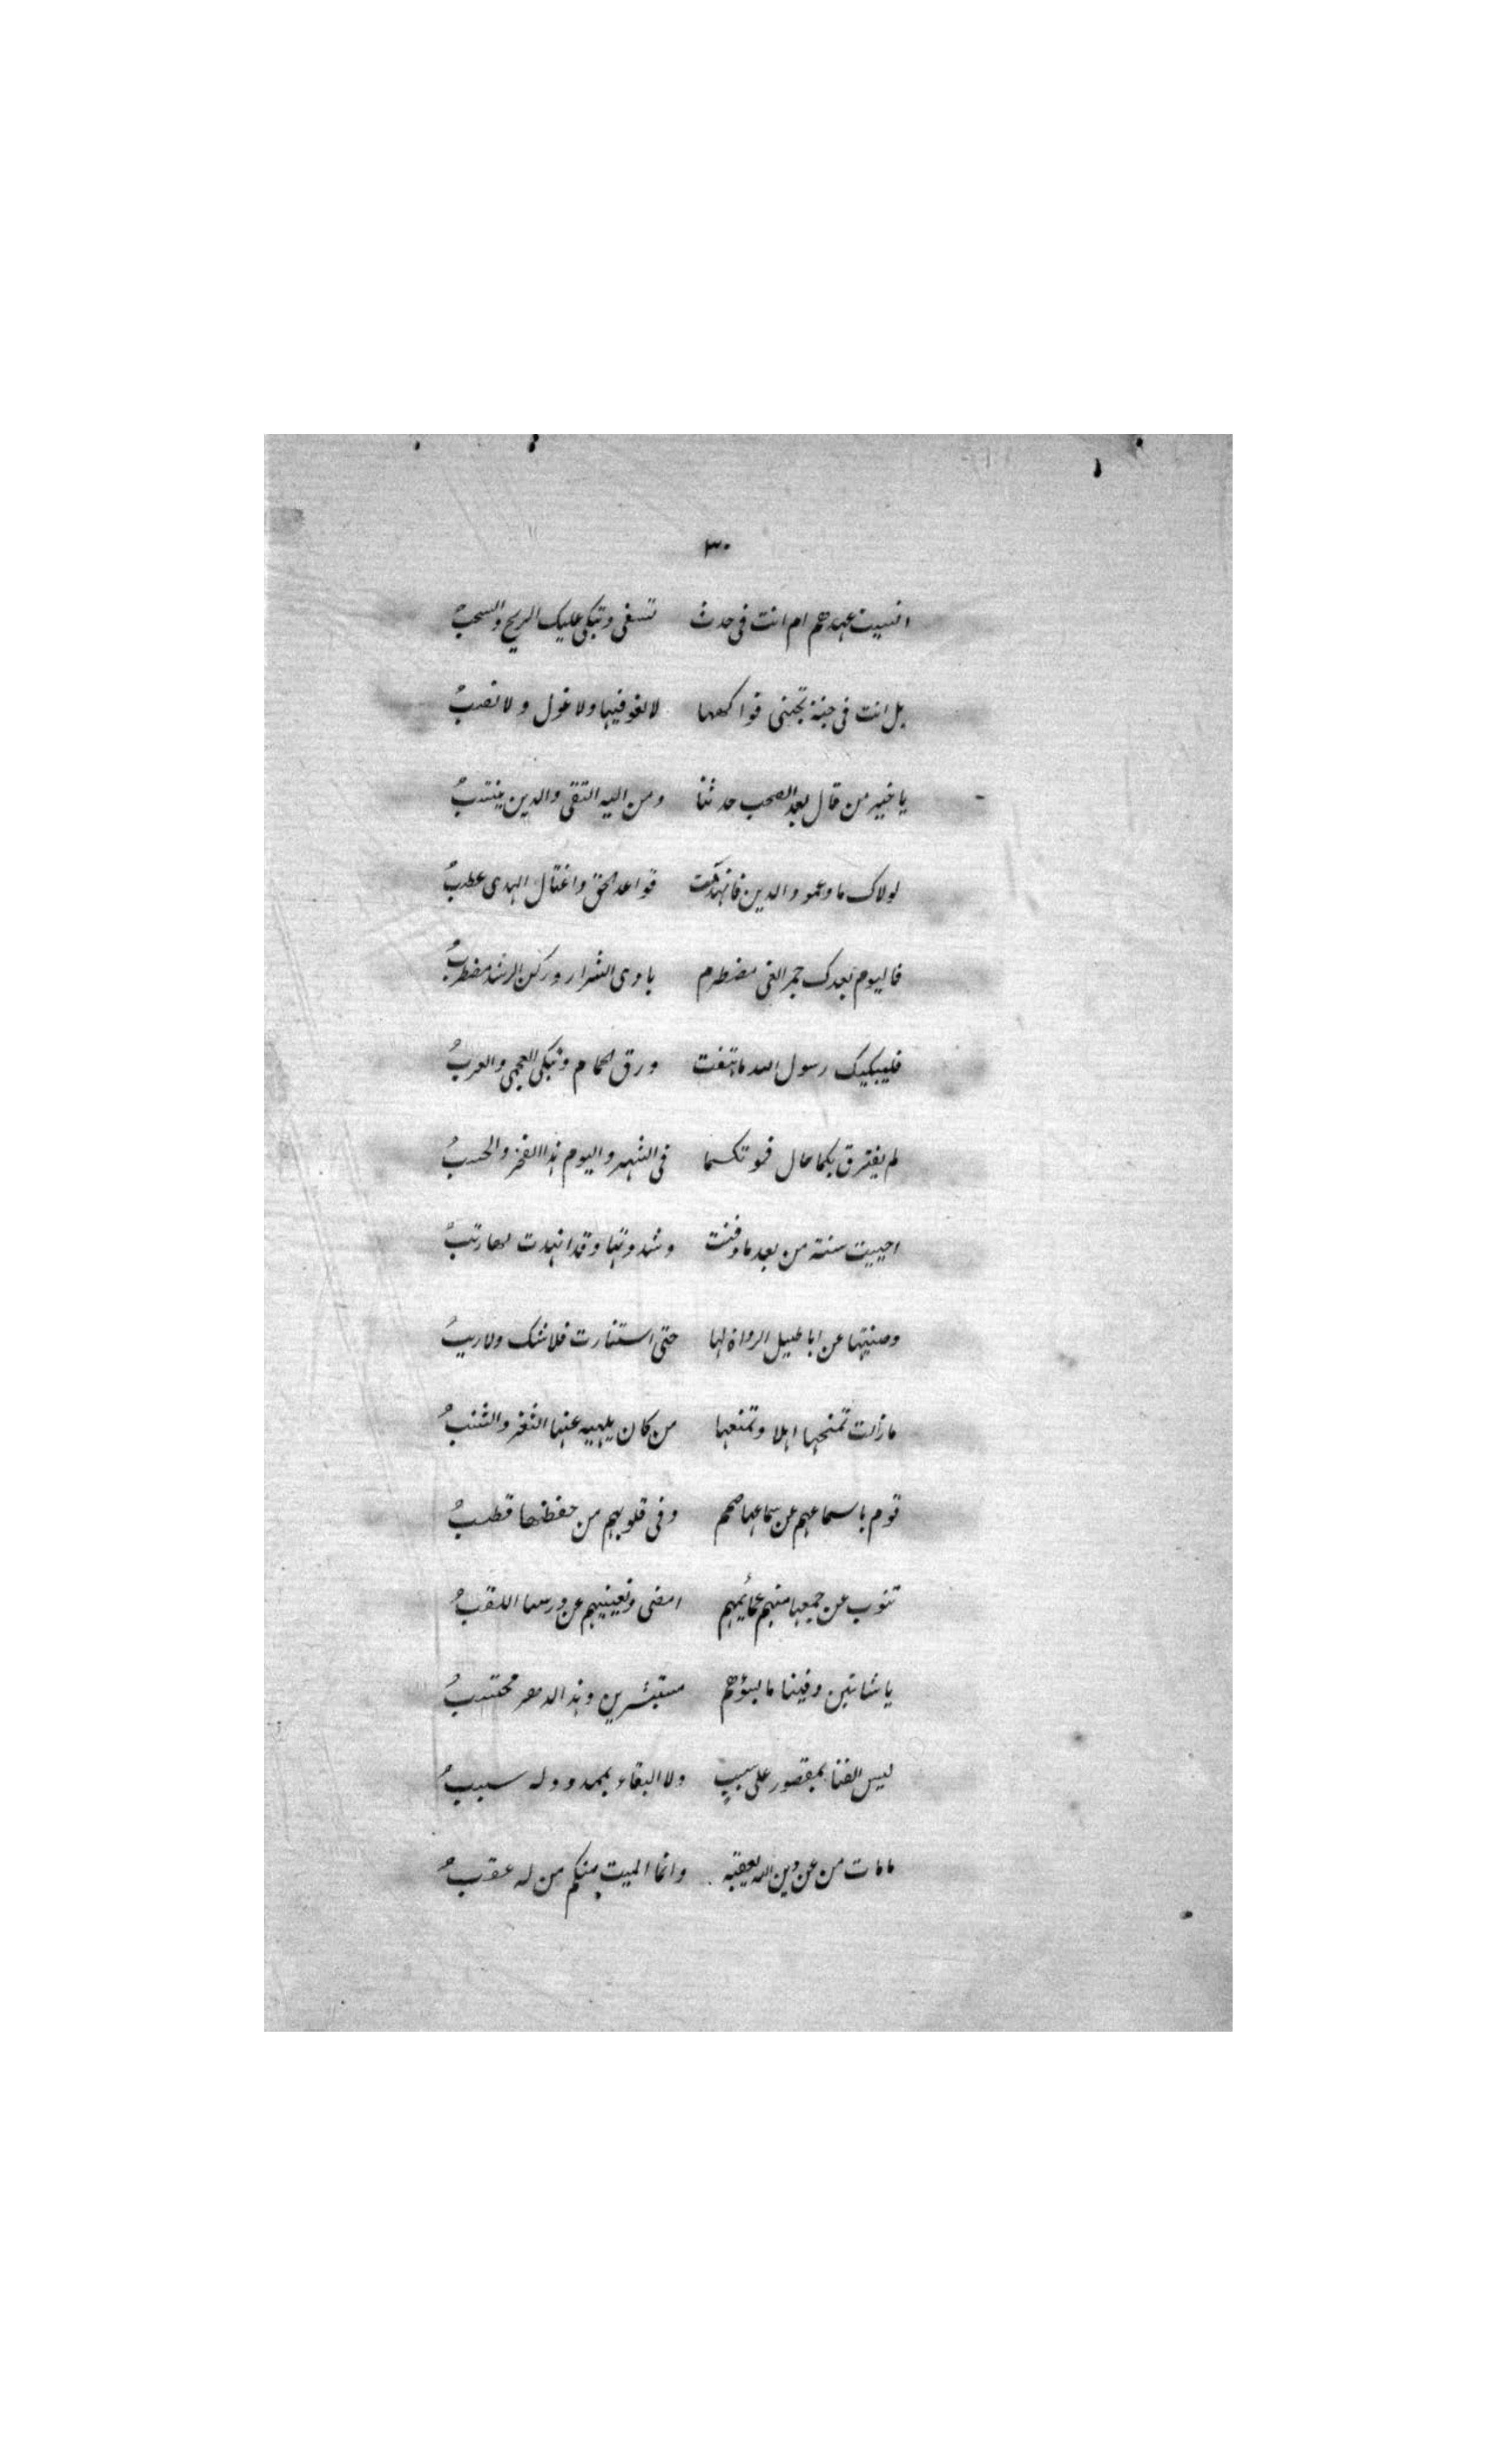 ٣٠
انسيت عهدهم ام انت فى جدث تسفى وتبكى عليك الريح والسحبُ
بل انت فى جنة تجنى فواكهها لا لغو فيها ولا غول ولا نصبُ
يا خير من قال بعد الصحب حدثنا ومن اليه التقى والدين ينتسبُ
لولاك مادعمود الدين فانهدمت قواعد الحق واغتال الهدى عطبُ
فاليوم بعدك جمر الغى مضطرم بادى الشرار وركن الرشد مضطربُ
فليبكيك رسول الله ما هتفت ورق الحمام وتبكى العجم والعربُ
لم يفترق بكما حال فموتكما فى الشهر واليوم هذا الفخر والحسبُ
احييت سنته من بعد ما دفنت وشدوتها وقد انهدت لها رتبُ
وصنتها عن اباطيل الرواة لها حتى استنارت فلا شك ولا ريبُ
ما زلت تمنحها اهلا وتمنعها من كان يلهيه عنها الثغر والشنبُ
قوم باسماعهم عن سماعها صمم وفى قلوبهم من حفظها قطبُ
تنوب عن جمعها منهم عمائمهم ايضى ويغنيهم عن درسها اللقبُ
يا شامتين وفينا ما يسؤهم مستبشرين وهذا الدهر محتسبُ
ليس الفنا بمقصور على سبب ولا البقاء بممدود له سببُ
ما مات من عن دين الله يعقبه وانما الميت منكم من له عقبُ